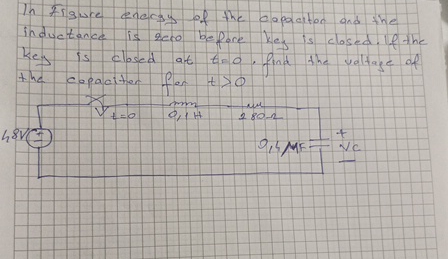 In Figure energy of the capacitor and the
inductance is zero before key is closed. If the
key is closed at t=0, find the voltage of
the capacitor for t>0
t=0
0,1H
280Ω
48V
+
VC